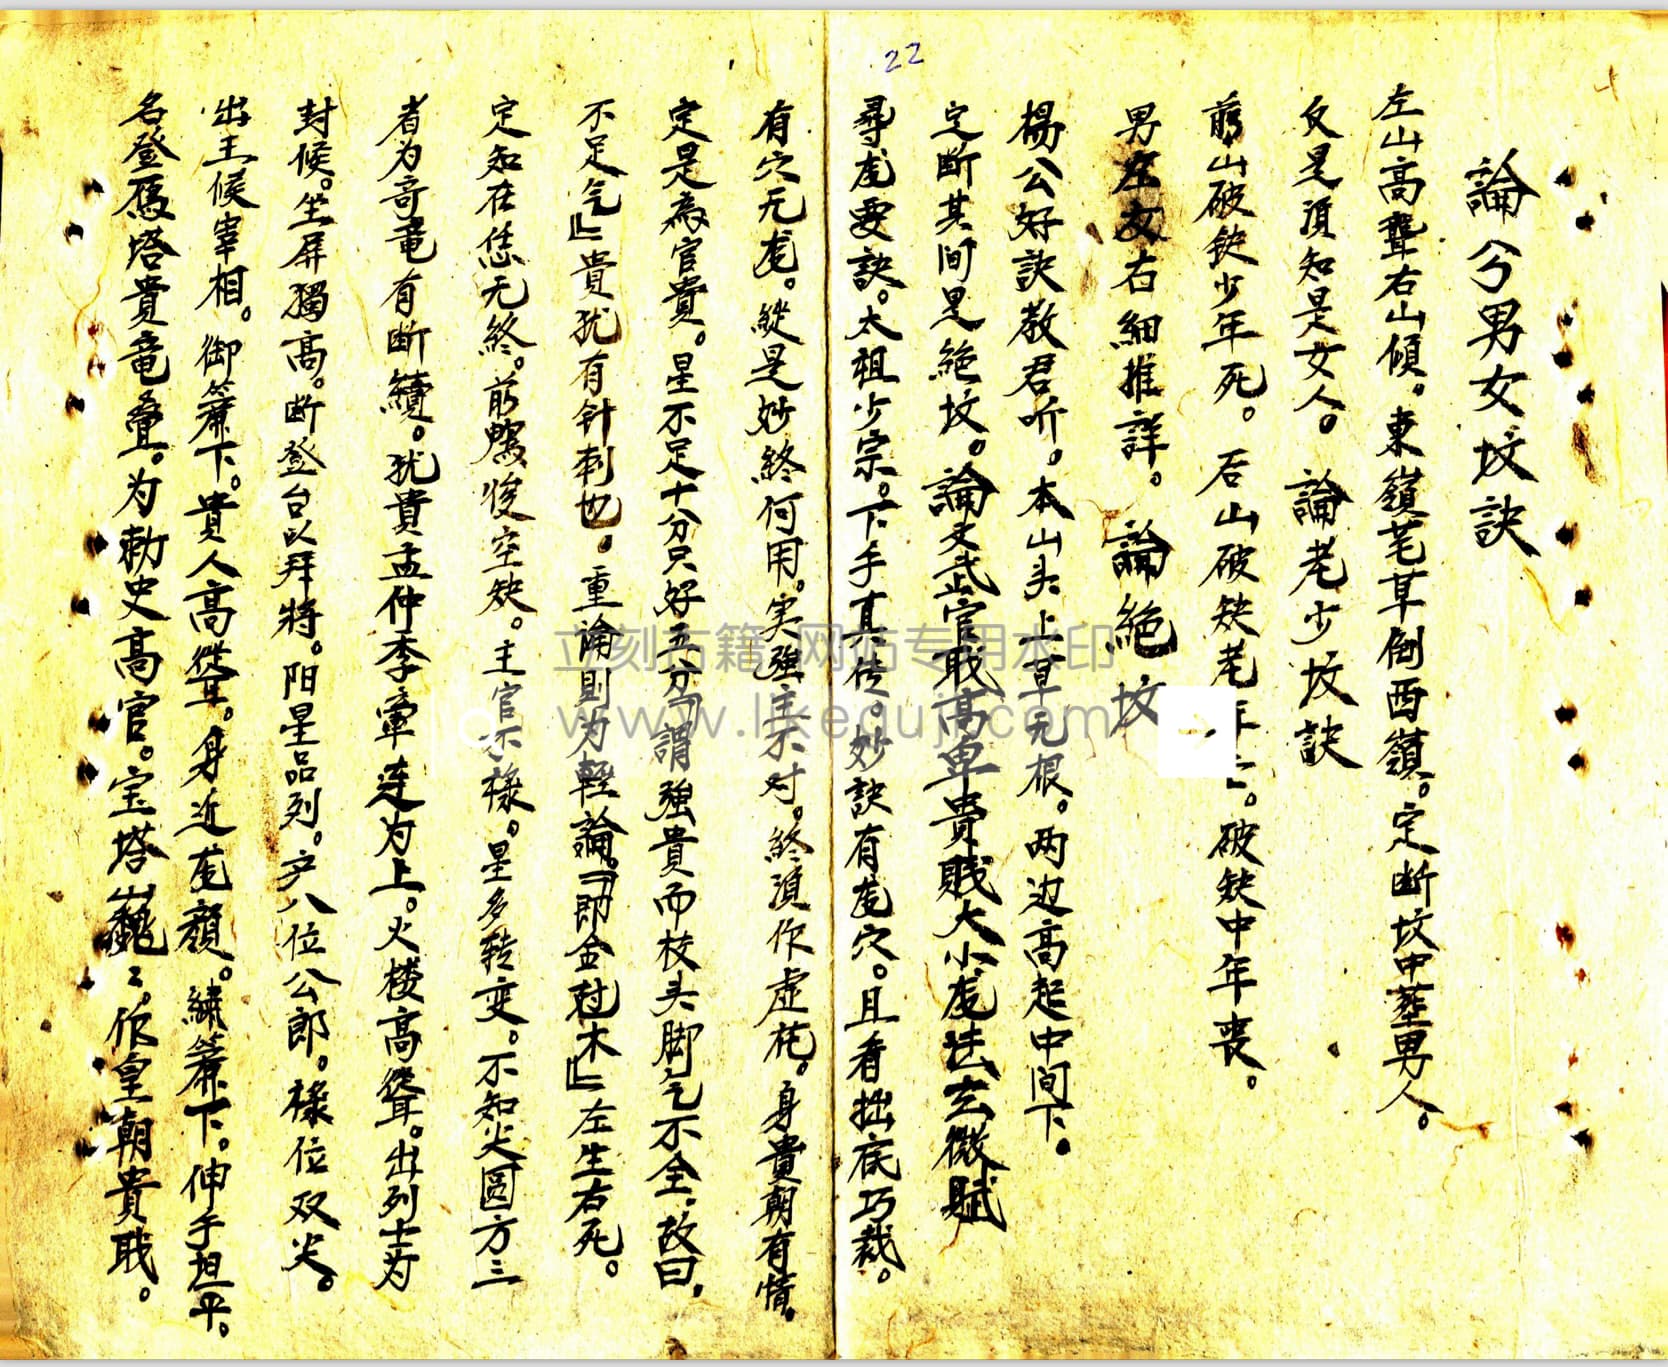 22
論分男女坟訣
左山高聳右山傾。東嶺芼草倒西嶺。定断坟中塟男人。
反是湏知是女人。 論老少坟訣
前山破鈌少年死。后山破鈌老年亡。破鈌中年喪。
男左女右細推詳。 論絕坟
楊公好訣教君听。本山头上草无根。两边高起中间下。
定断其间是絕坟。論文武官职高卑貴賤大小龙法玄微賦
尋龙要訣。太祖少宗。下手真传。妙訣有龙穴。且看拙底巧裁。
有穴无龙。縱是妙終何用。実強主不对。終湏作虚花。身貴朝有情。
定是為官貴。星不足十分只好五分「謂強貴而枝头脚乞不全。故曰.
不足乞」貴犹有针刺也。重論則为輕論。「即金尅木」左生右死。
定知在恁无終。前鸞後空鈌。主官不祿。星多转变。不知火圆方三
者为奇竜有断續。犹貴孟仲季窜连为上。火楼高聳。出列士为
封候。坐屏獨高。断登台以拜將。阳星品列。产八位公郎。祿位双尖。
出王候宰相。御簾下。貴人高聳。身近龙顏。繡簾下。伸手坦平。
名登鴈塔貴竜叠。为勅史高官。宝塔巍〻。作皇朝貴戝。
立刻古籍 网站专用水印
www.likeguji.com